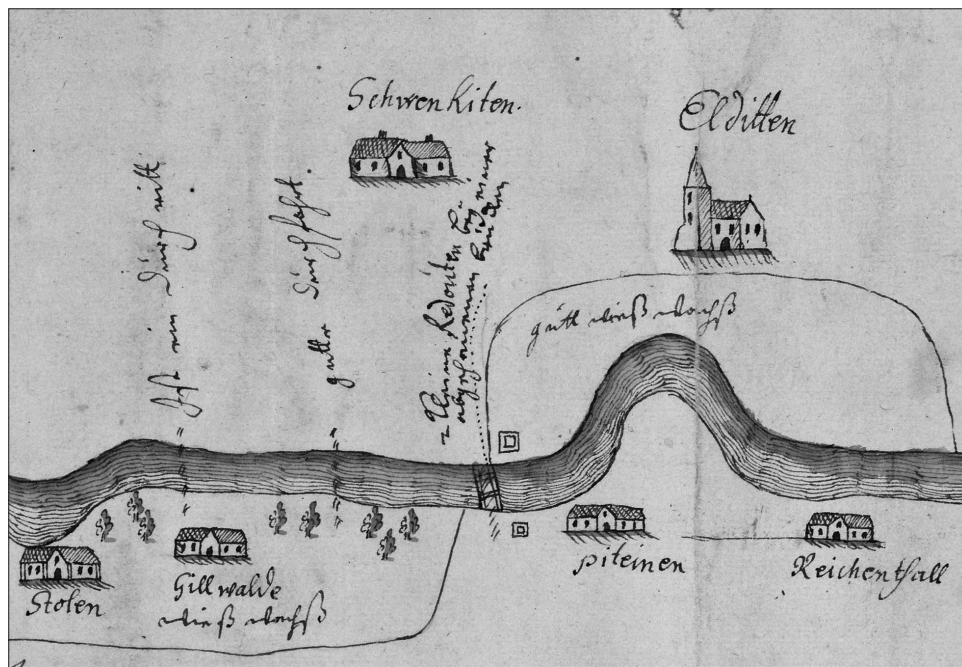 Schwenkiten.
Elditten
Ist ein Durch ritt
gutter Durchfahrt.
2 kleine Redouten bey einer
abgehauenen brücken
gutt wieß wachß
Stolen
Gillwalde
wieß wachß
piteinen
Reichenthall